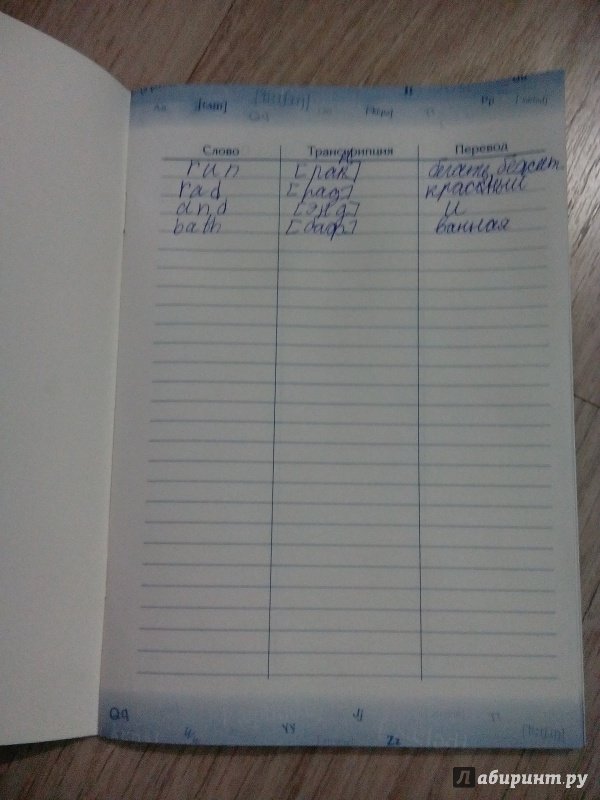 Слово Транскрипция Перевод
run [ран] бегать, бежит
rad [рад] красный
and [энд] и
bath [баф] ванная
Qq
Yy
Jj
Zz
Лабиринт.ру